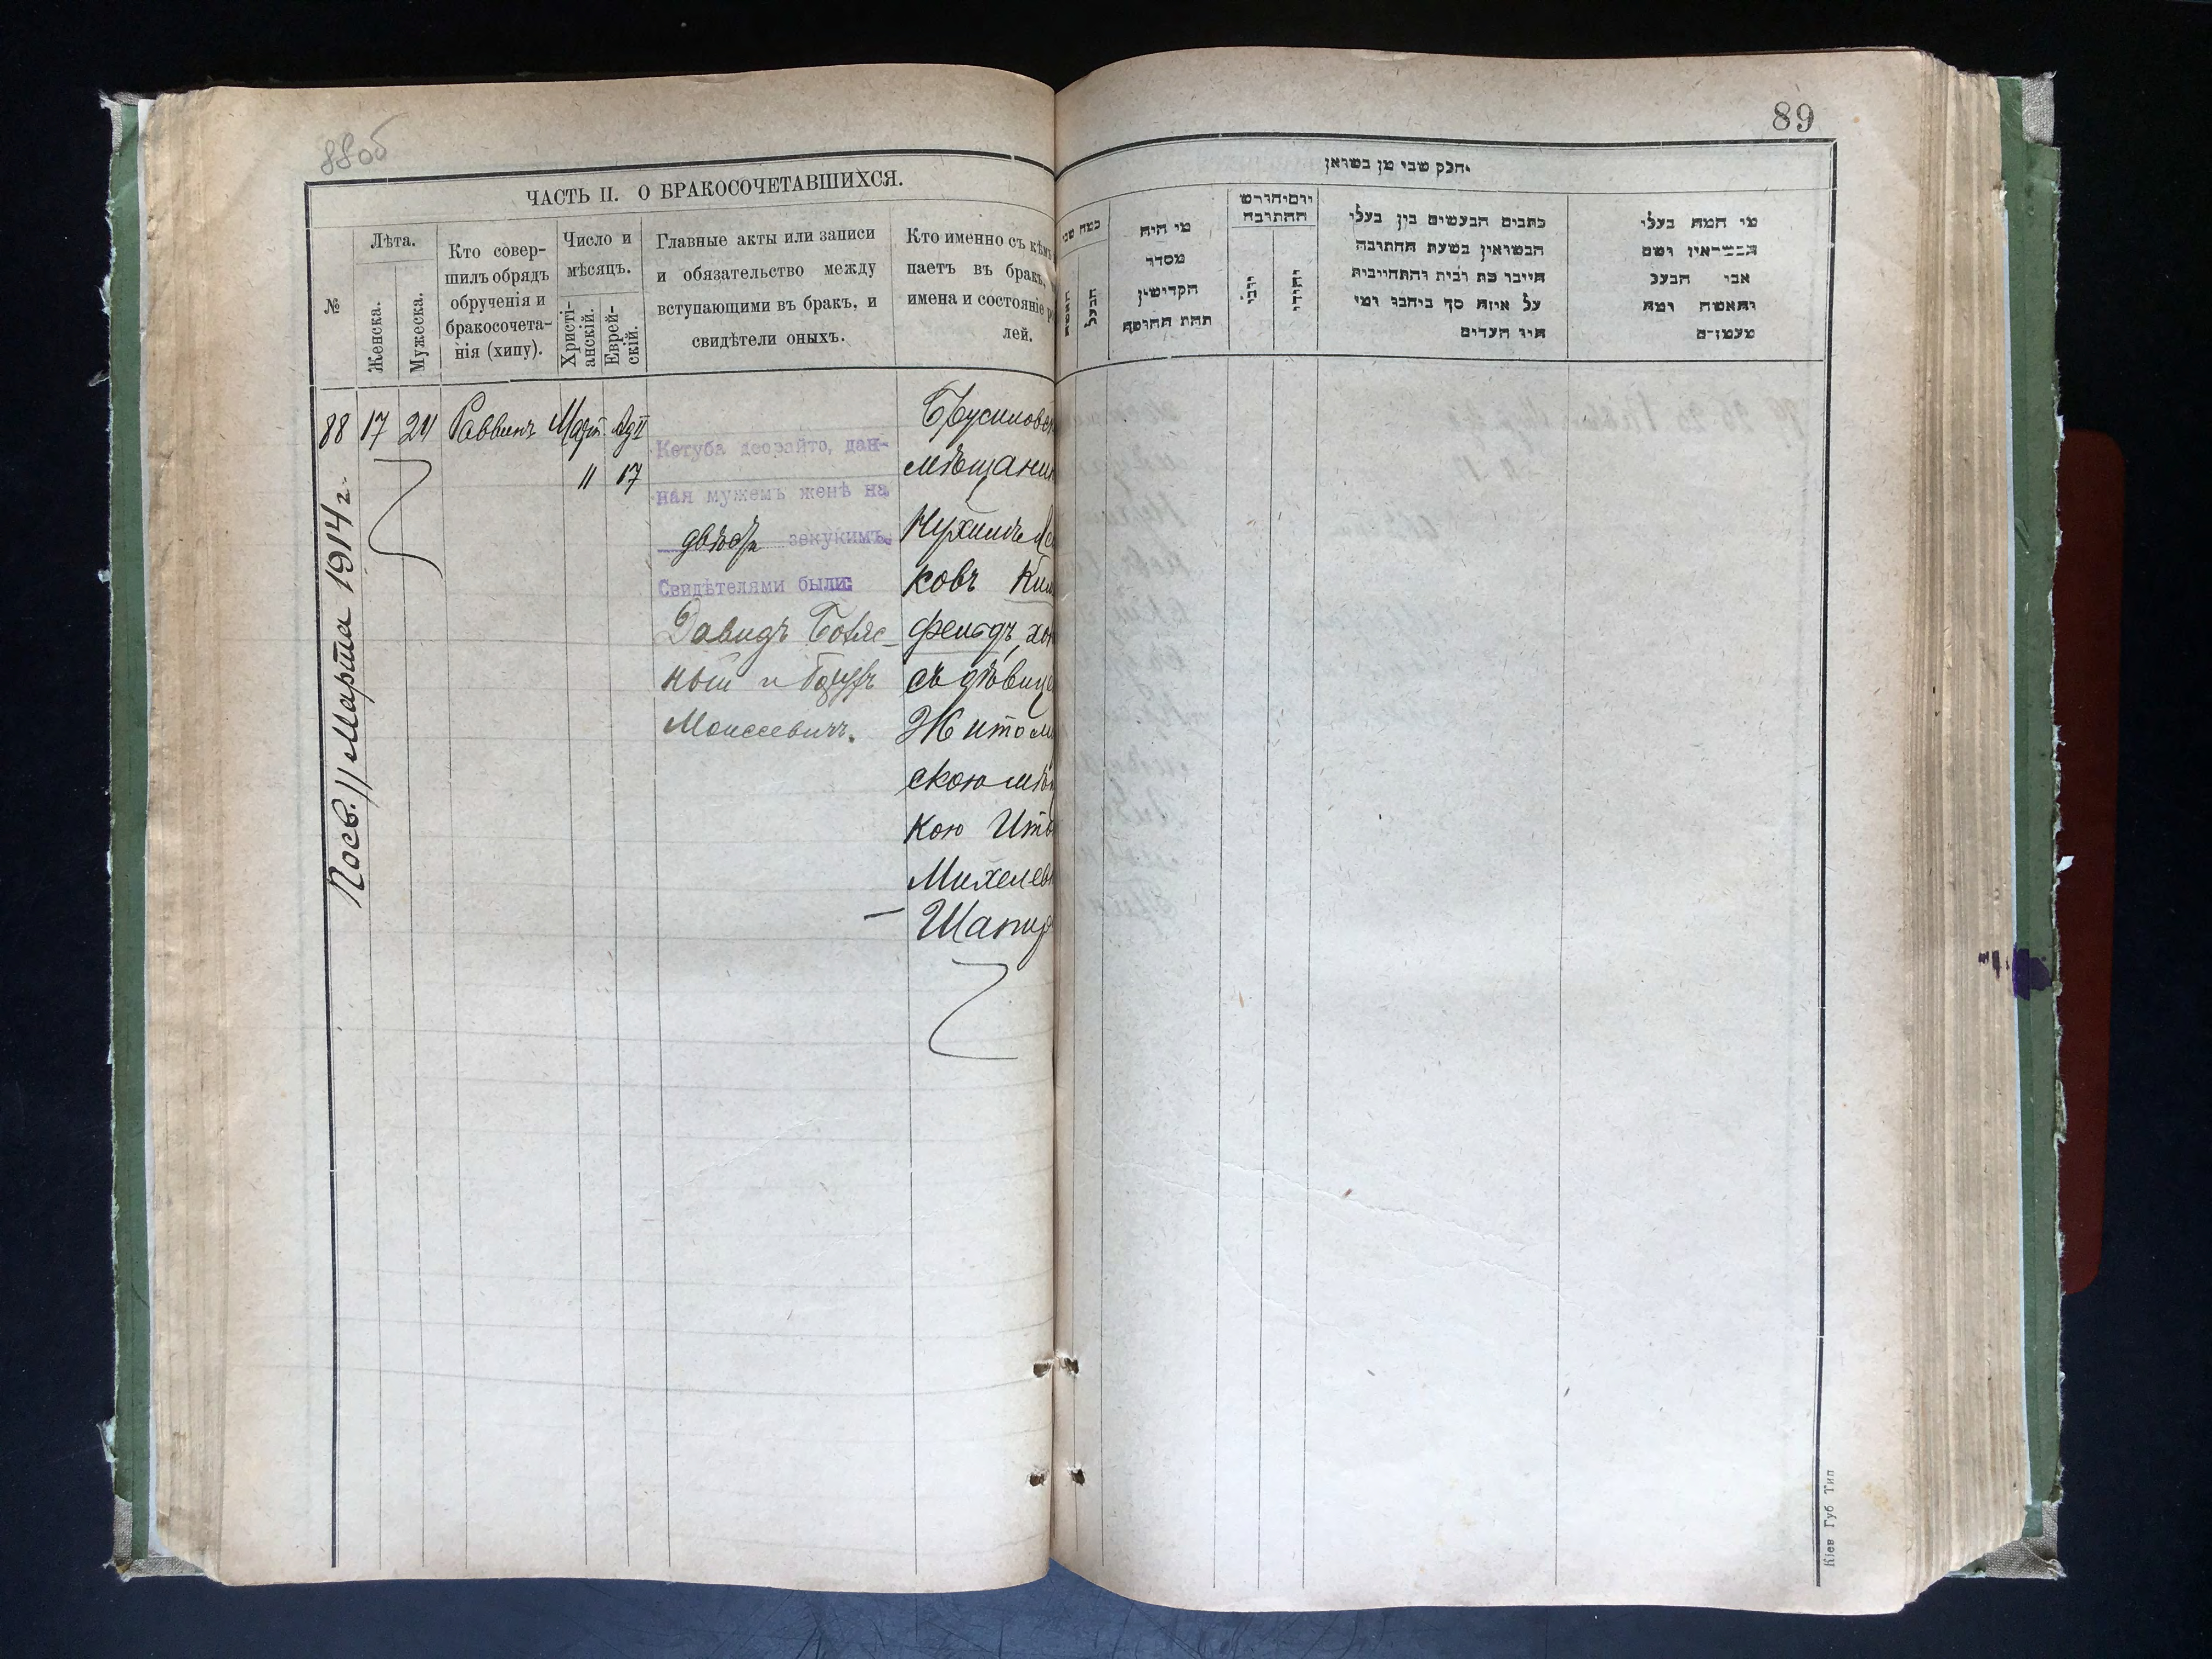 88об
ЧАСТЬ II. О БРАКОСОЧЕТАВШИХСЯ.
№
Лѣта.
Женска.
Мужеска.
Кто совер-
шилъ обрядъ
обрученія и
бракосочета-
нія (хипу).
Число и
мѣсяцъ.
Христі-
анскій.
Еврей-
скій.
Главные акты или записи
и обязательство между
вступающими въ бракъ, и
свидѣтели оныхъ.
Кто именно съ кѣмъ
паетъ въ бракъ,
имена и состояніе р
лей.
88 17 24 Раввинъ Март. Ад II
11 17
Посв. 11 Марта 1914 г.
Кетуба деорайто, дан-
ная мужемъ женѣ на
двѣсти зекукимъ.
Свидѣтелями были:
Давидъ
ный и
Моисеевичъ.
Брусиловск
мѣщанин
Нухимъ
ковъ Кин
фельдъ, хол
съ дѣвице
Житоми
скою мѣщ
кою Ито
Михелев
Шапир
89
חלק שני מן נשואין.
כמה שני
האשה
הבעל
מי היה
מסדר
הקדושין
תחת החופה
יום וחודש
החתונה
יוני
יהודי
כתבים הנעשים בין בעלי
הנשואין בשעת החתונה
חייבי כת ובית והתחייבות
על איזה סך ביחבו ומי
היו העדים
מי המה בעלי
הנשואין ושם
אבי הבעל
והאשה ומה
מעמדם
Кіев Губ Тип